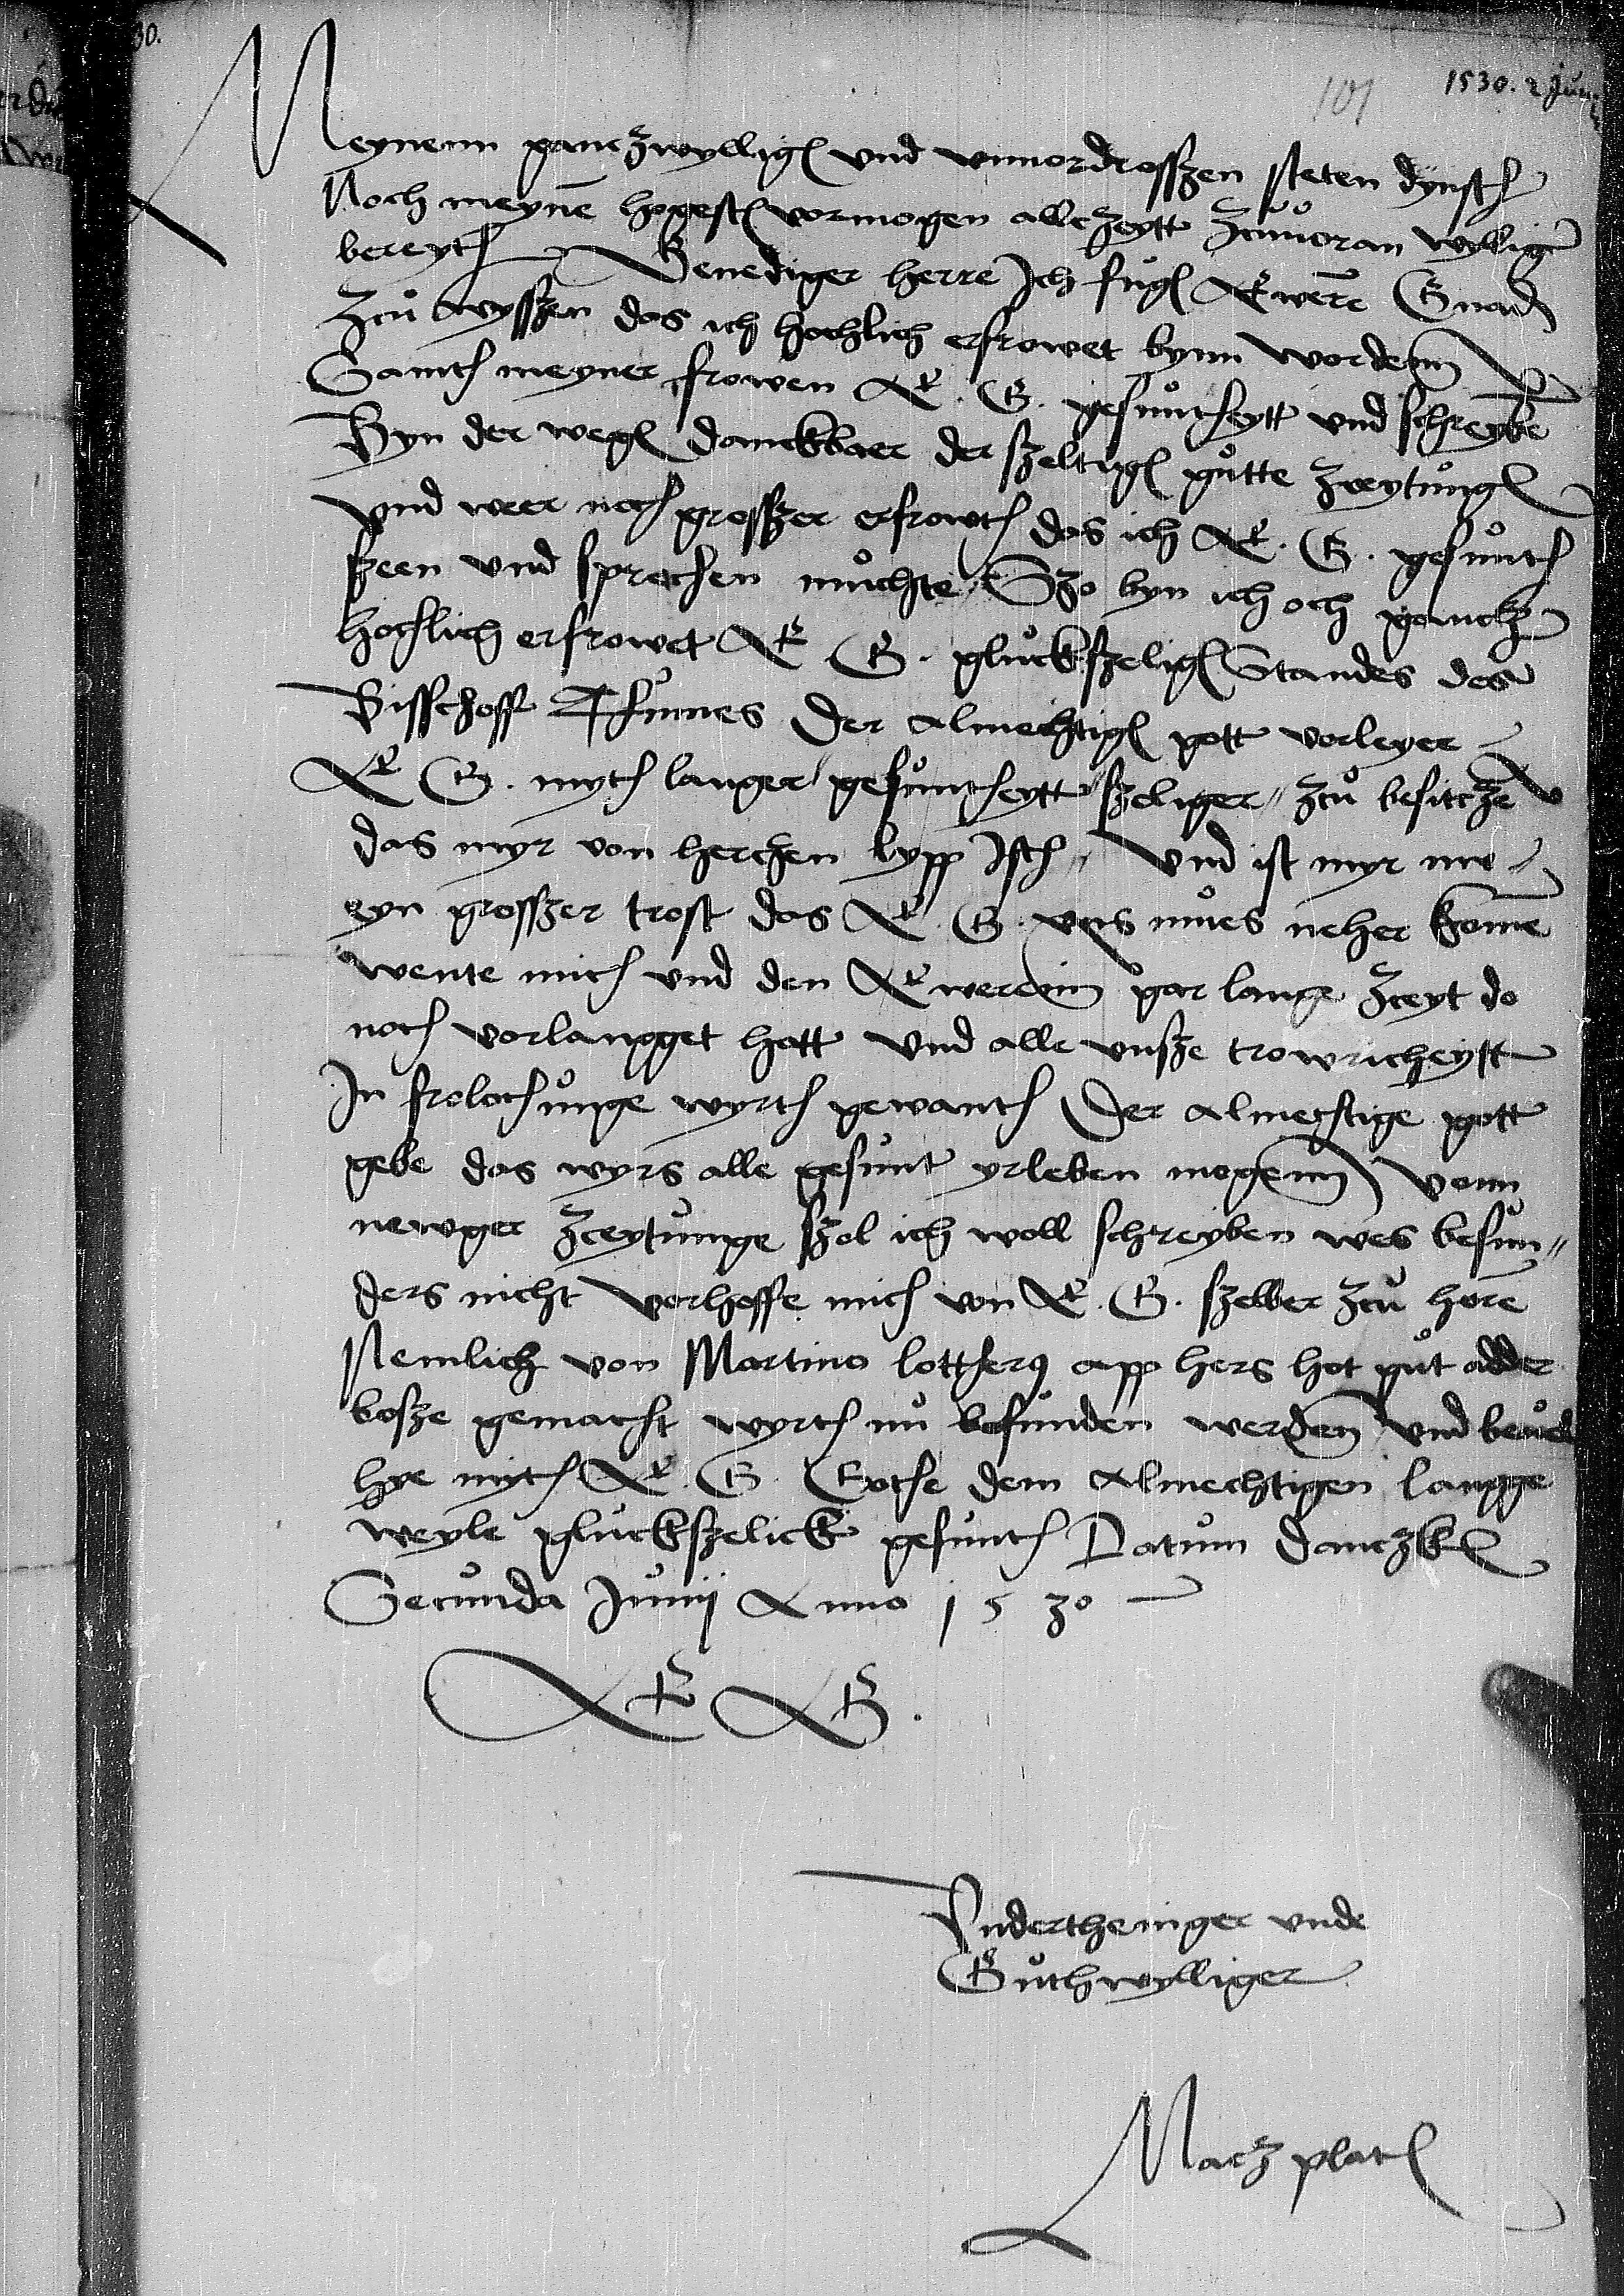 30.
101
1530. 2 Junii
Meynenn ganczwyllige und unuordrosszen steten dynsth
Noch meyne hogeste vormogen alleczeytt zcuuoran wyllig
bereyth Genediger herre Ich fuge Ewere Gnade
zcu wysszen das ich hochlich erfrowet bynn wordenn
Samth meyner frowen E. G. gesuntheytt und schreybe
Byn der wege danckbaer der szeltige gutte zceytunge
und weer noch grosszer erfrowth das ich E. G. gesunth
szeen und sprechen muchte Szo byn ich och gancz
hochlich erfrowet E G. gluckszelige Standes des
Bisschoff Thumes Der Almechtige gott vorleyer
E G. myth langer gesuntheytt szeliger zcu besitcze
das myr von herczen lypp Isth Und ist myr me
eyn grosszer trost das E. G. uns mues neher kome
wente mich und den Ewerenn gar lange zceyt do
noch vorlangget hatt und alle unsze trowricheytt
In frolochunge wyrth gewanth Der Almechtige gott
gebe das wyrs alle gesunt yrleben mogenn Vonn
newger zceytunge szol ich woll schreyben wes besun
ders nicht vorhoffe mich von E. G. szelber zcu hore
Nemlich von Martino lottherus app hers hot gut adder
bosze gemacht wyrth nu befunden werdenn und beuel
hye myth E. G. Gothe dem Almechtigen langge
weyle gluckszelick gesunth Datum Danczke
Secunda Junii Anno 1530
E G.
Undertheniger unde
Guthwylliger
Macz plate